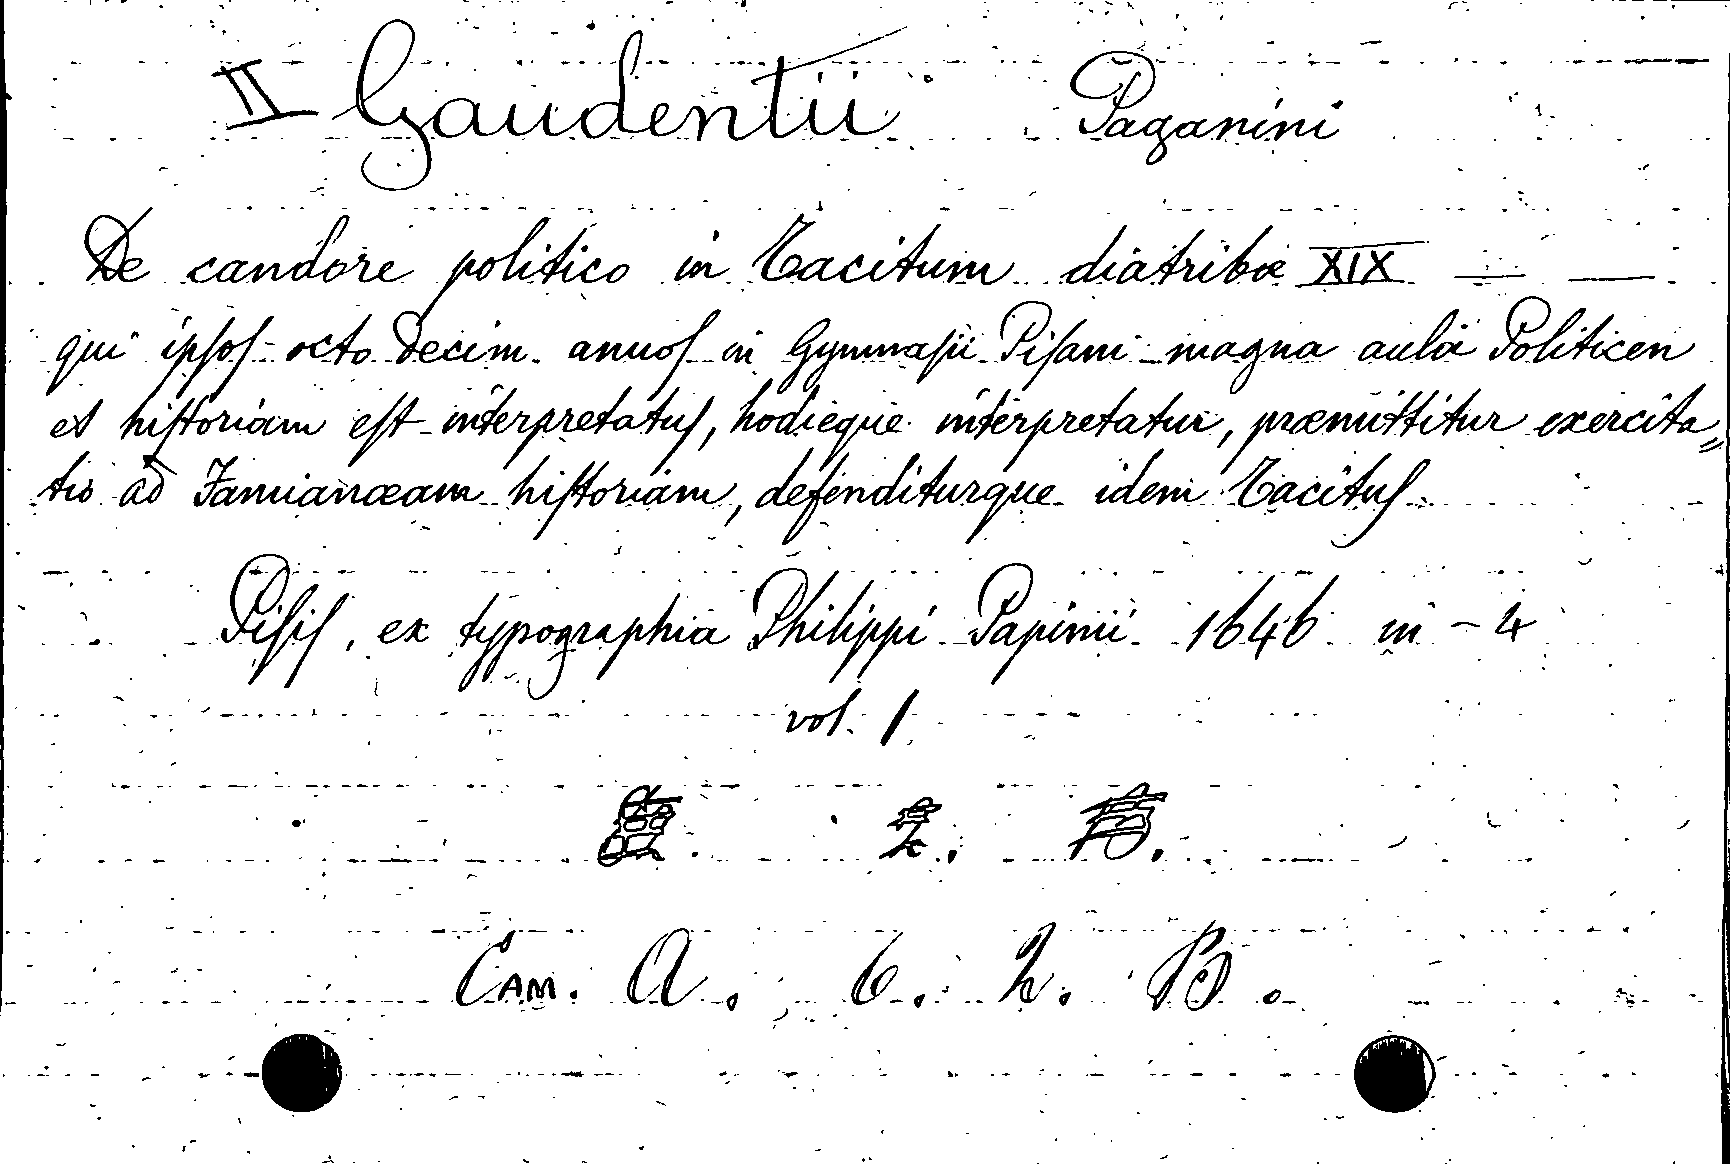 II Gaudentii Paganini
De candore politico in Tacitum diatribæ XIX — —
qui ipsos octo decim annos in Gymnasii Pisani magna aula Politicen
et historiam est interpretatus, hodieque interpretatur, præmittitur exercita„
tio ad Famianæam historiam, defenditurque idem Tacitus
Pisis, ex typographia Philippi Papinii 1646 in - 4
vol. 1
Cam. A. 6. 2. B.